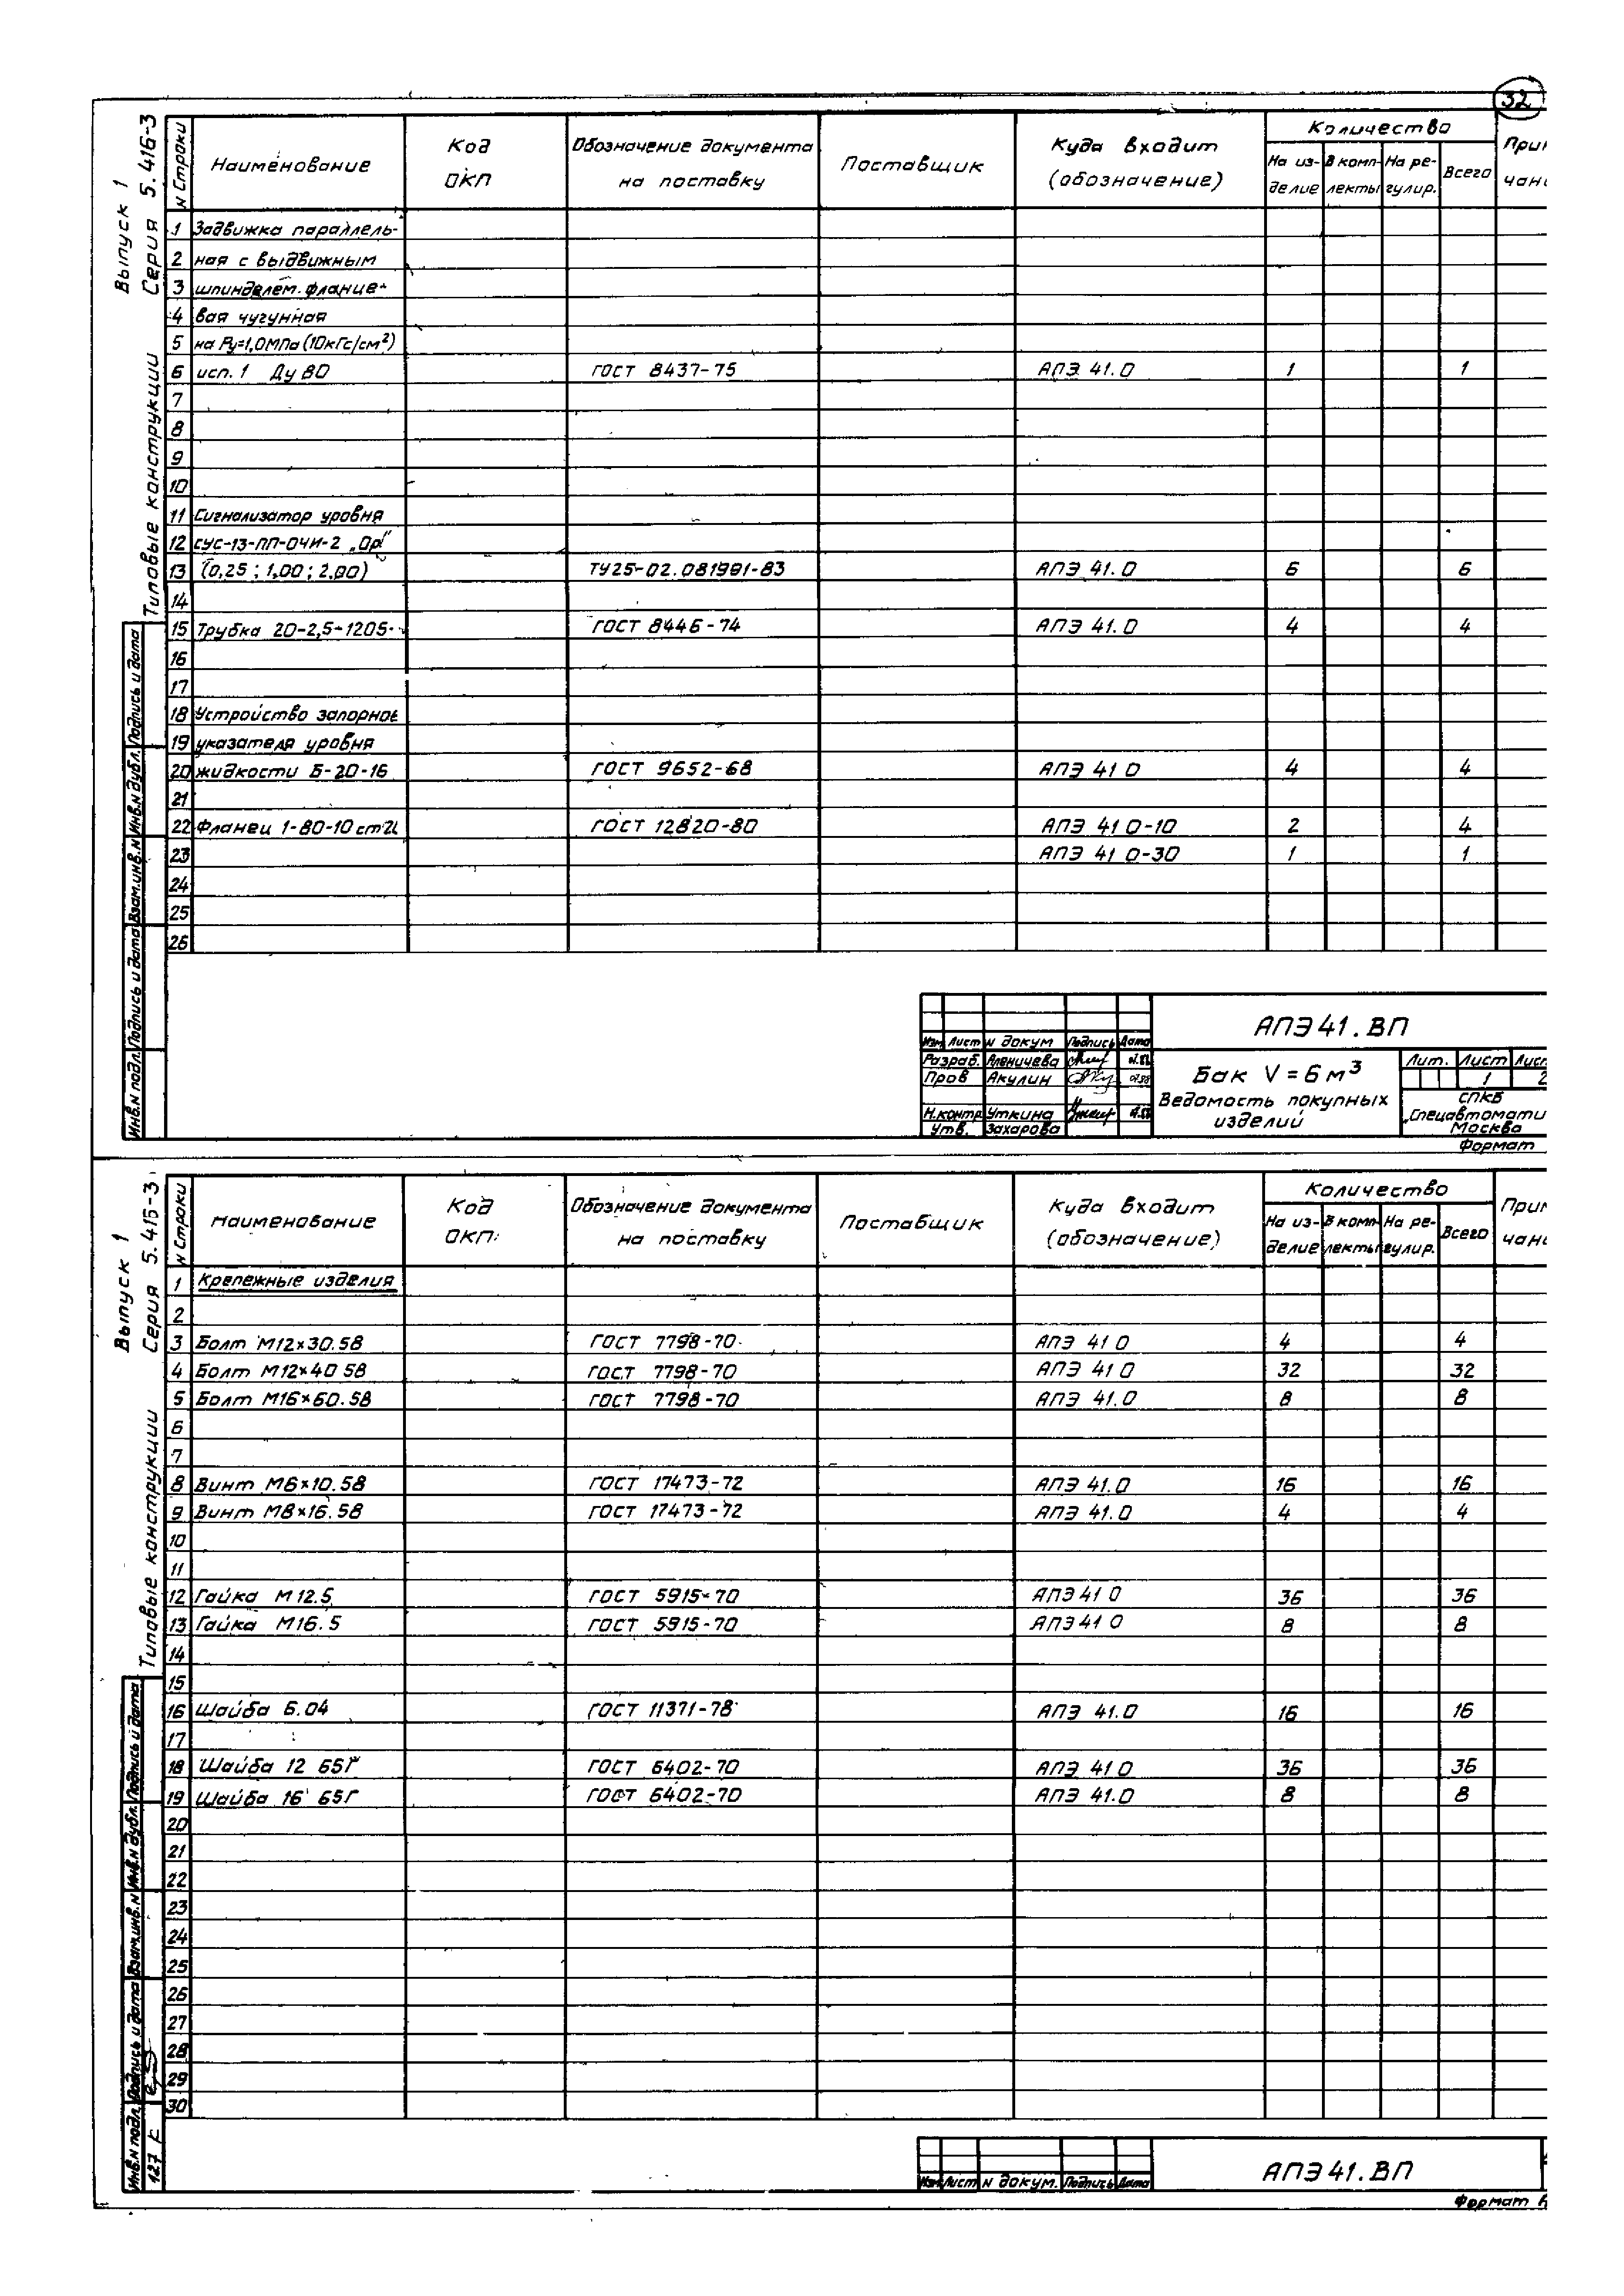 32
Выпуск 1
Серия 5.416-3
Типовые конструкции
N строки Наименование Код ОКП Обозначение документа на поставку Поставщик Куда входит (обозначение) Количество
На из-делие В комп-лекты На ре-гулир. Всего
1 Задвижка параллель-
2 ная с выдвижным
3 шпинделем фланце-
4 вая чугунная
5 на Ру=1,0МПа (10кГс/см²)
6 исп. 1 Ду 80 ГОСТ 8437-75 АПЭ 41.0 1 1
7
8
9
10
11 Сигнализатор уровня
12 СУС-13-ПП-ОЧИ-2 „Ор"
13 (0,25; 1,00; 2,00) ТУ25-02.081991-83 АПЭ 41.0 6 6
14
15 Трубка 20-2,5-1205 ГОСТ 8446-74 АПЭ 41.0 4 4
16
17
18 Устройство запорное
19 указателя уровня
20 жидкости Б-20-16 ГОСТ 9652-68 АПЭ 41 0 4 4
21
22 Фланец 1-80-10 ГОСТ 12820-80 АПЭ 41 0-10 2 4
23 АПЭ 41 0-30 1 1
24
25
26
Инв.N подл. Подпись и дата Взам.инв.N Инв.N дубл. Подпись и дата
АПЭ41.ВП
Изм Лист N докум Подпись Дата
Разраб. Аленичева
Пров Акулин
Н.контр Уткина
Утв. Захарова
Бак V = 6 м³
Ведомость покупных
изделий
Лит. Лист
1 2
СПКБ
Москва
Формат
Выпуск 1
Серия 5.415-3
Типовые конструкции
N строки Наименование Код ОКП Обозначение документа на поставку Поставщик Куда входит (обозначение) Количество
На из-делие В комп-лекты На ре-гулир. Всего
1 Крепежные изделия
2
3 Болт М12×30.58 ГОСТ 7798-70 АПЭ 41 0 4 4
4 Болт М12×40 58 ГОСТ 7798-70 АПЭ 41 0 32 32
5 Болт М16×60.58 ГОСТ 7798-70 АПЭ 41.0 8 8
6
7
8 Винт М6×10.58 ГОСТ 17473-72 АПЭ 41.0 16 16
9 Винт М8×16.58 ГОСТ 17473-72 АПЭ 41.0 4 4
10
11
12 Гайка М12.5 ГОСТ 5915-70 АПЭ 41 0 36 36
13 Гайка М16.5 ГОСТ 5915-70 АПЭ 41 0 8 8
14
15
16 Шайба 6.04 ГОСТ 11371-78 АПЭ 41.0 16 16
17
18 Шайба 12 65Г ГОСТ 6402-70 АПЭ 41 0 36 36
19 Шайба 16 65Г ГОСТ 6402-70 АПЭ 41.0 8 8
20
21
22
23
24
25
26
27
28
29
30
Инв.N подл. Подпись и дата Взам.инв.N Инв.N дубл. Подпись и дата
Изм Лист N докум. Подпись Дата
АПЭ41.ВП
Формат